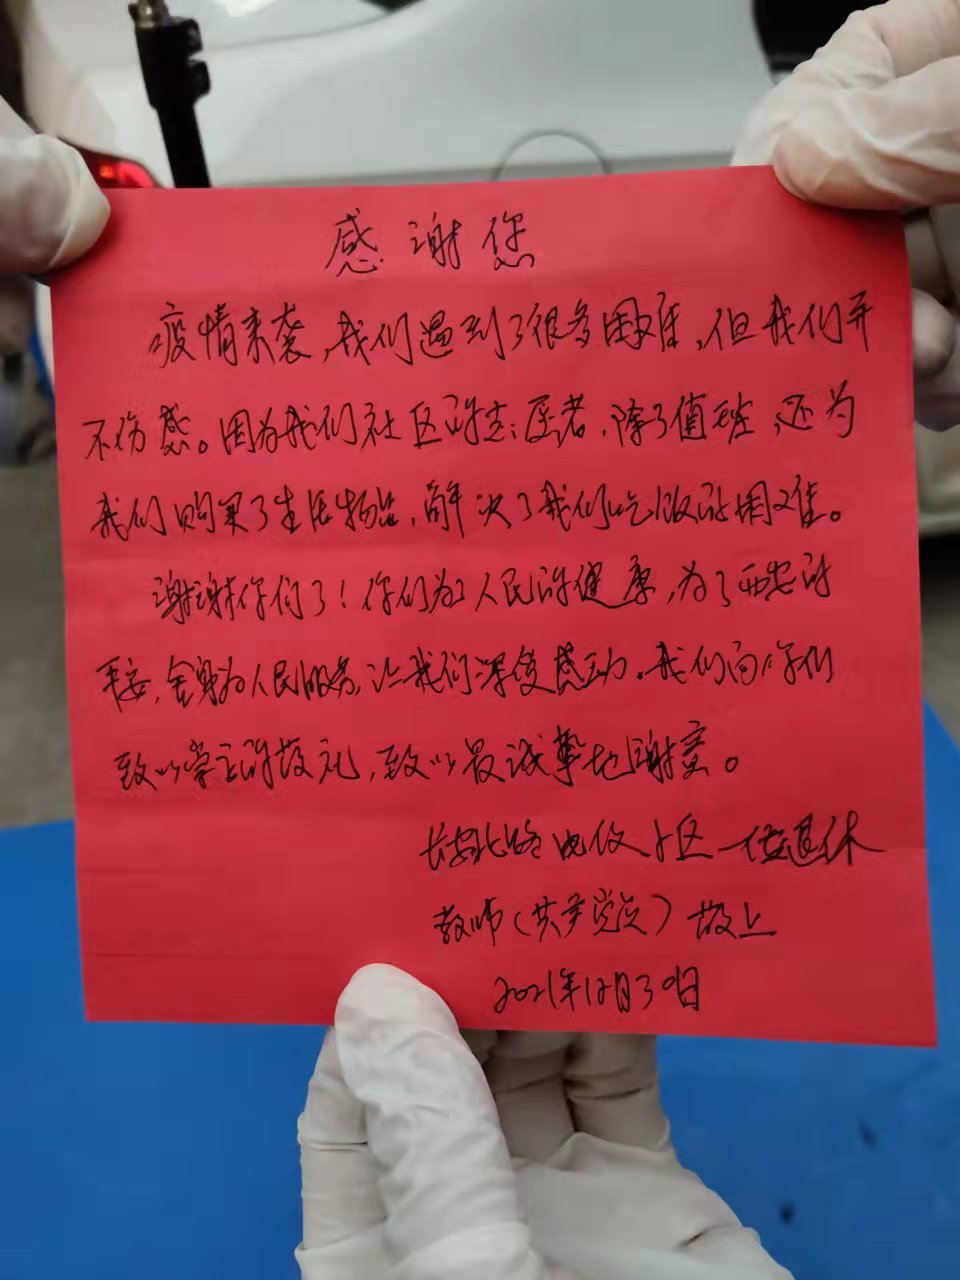 感谢您
疫情来袭，我们遇到了很多困难，但我们并
不伤感。因为我们社区的志愿者，除了值班，还为
我们购买了生活物品，解决了我们吃饭的困难。
谢谢你们了！你们为了人民的健康，为了西安的
平安，全身为人民服务，让我们深受感动。我们向你们
致以崇高的敬礼，致以最诚挚地谢意。
长安北路电仪小区一位退休
教师（共产党员）敬上
2021年12月30日